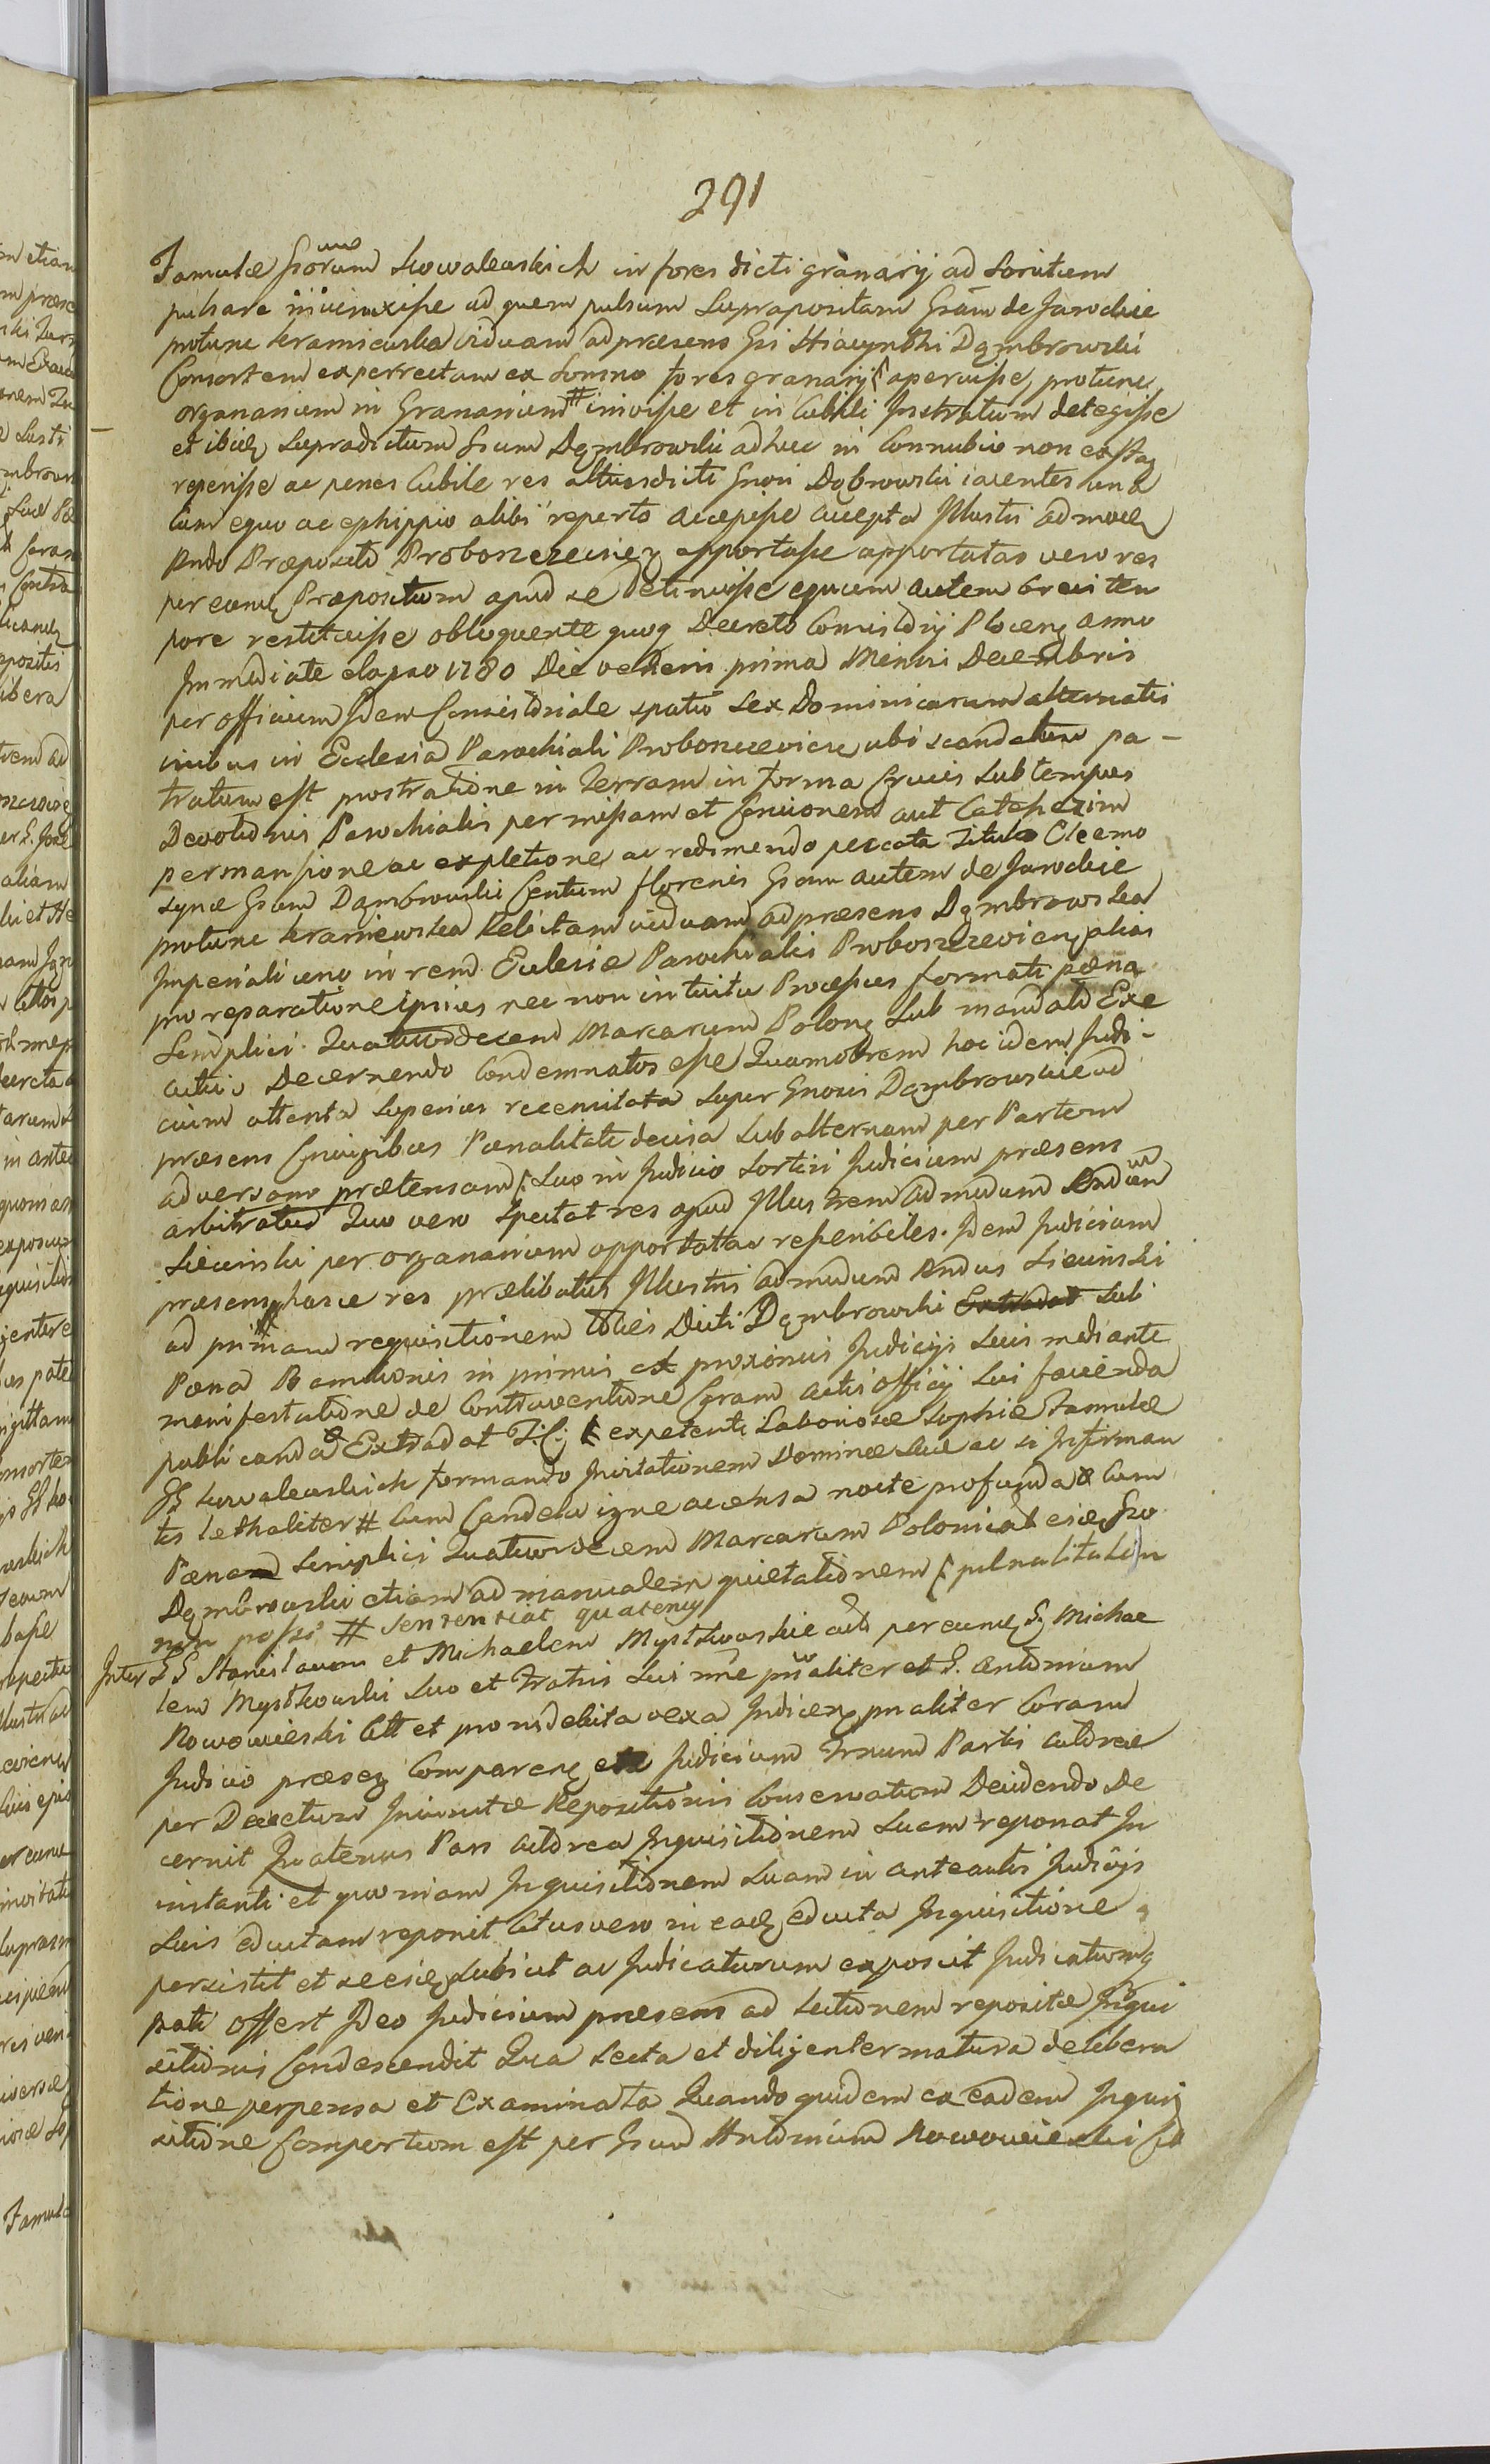 291
Famulæ Grorum Kowalewskich in fores dicti granarij ad Loritum
pulsare ad quem pulsum Suprapositam Gram de Jarockie
protunc kraniewska viduam ad præsens Gsi Hiacynthi Dąmbrowski
Consortem experrectam ex Somno fores granarij aperuisse, protunc
organarium in Granarium # inivisse et in Cubili Instratum detegisse
et ibidę Supradictum Grum Dąmbrowski adhuc in Connubio non
reperisse ac penes Cubile res altius dicti Gnosi Dąbrowski iacentes una
cum equo ac ephippio alibi reperto accepisse accepta Illustri admodę
Rndo Præposito Proboszczewicę apportasse apportatas vero res
per eunę Præpositum apud se detinuisse equum autem brevi tem
pore restituisse obloquente quoq Decreto Consistorij Plocenę anno
Immediate elapso 1780 Die vedem prima Mensis Decembris
per officium Idem Consistoriale spatio Sex Dominicarum alternatis
vicibus in Ecclesia Parochiali Proboszczevicen ubi scandalum pa-
tratum est prostratione in Terram in forma Crucis Sub tempus
Devotionis Parochialis per missam et Concionem aut Catechezim
permansione ac expletione ac redimendo peccata Titulo Eleemo
synæ Grum Dąmbrowski Centum florenis Gram autem de Jarockie
protunc kraniewska Relictam viduam ad præsens Dąmbrowska
Imperiali uno in rem Ecclesiæ Parochialis Proboszczevicenę alias
pro reparatione ipsius nec non intuitu Processus formati pæna
Simplici Quatuordecem Marcarum Polonę Sub mandato Exe
cutivo Decernendo Condemnatos esse Quamobrem hoc idem Judi-
cium attenta Superius recensitata Super Gnosis Dąmbrowskie ad
præsens Conjugibus Pœnalitate decisa Sub alternam per Partem
adversam prætensam Suo in Judicio Sortiri Judicium præsens
arbitratur Quo vero Spectat res apud Illustrem admodum Rndum
Siecinski per organarium apportatas repetibiles. Idem Judicium
præsens hasce res prælibatus Illustris admodum Rndus Siecinski
ad primam requisitionem toties Dicti Dąmbrowski Extradat Sub
Pœna Bannitionis in primis et proximis Judicijs Suis mediante
manifestatione de Contraventione Coram actis officij Sui facienda
publicanda Extradat expetenti Laboriosæ Sophiæ Famulæ
GG kowalewskich formando Invitationem Dominæ Suæ ac si Infirman
tis lethaliter # Cum Candela igne accensa nocte profunda Cum
Pœna Simplici Quatuordecem Marcarum Polonical eidę Gro
Dąmbrowski etiam ad manualem quietationem
non posse # Sentenciat quatenus
Inter GG Stanislaum et Michaelem Mystkowskie act per eunę G. Michae
lem Mystkowski Suo et Fratris Sui nne pnaliter et G. Antonium
Nowowieski Ctt et pro indebita vexa Judicenę pnaliter Coram
Judicio præseę Comparenę Judicium Irnum Partis actoreæ
per Decretum Injunctæ Repositionis Conservatum Decidendo De
cernit Quatenus Pars actorea Inquisitionem Suam reponat In
instanti et quoniam Inquisitionem Suam in anteactis Judicijs
Suis eductam reponit Ctus vero in eadę educta Inquisitione
persistit et seeidę Subicit ac Judicaturam exposcit Judicatumq
pati offert Ideo Judicium præsens ad Lectionem repositæ Inqui
sitionis Condescendit Qua Lecta et diligenter matura delibera
tione perpensa et Examinata Quando quidem ex eadem Inqui
sitione Compertum est per Grum Antonium Nowowieski